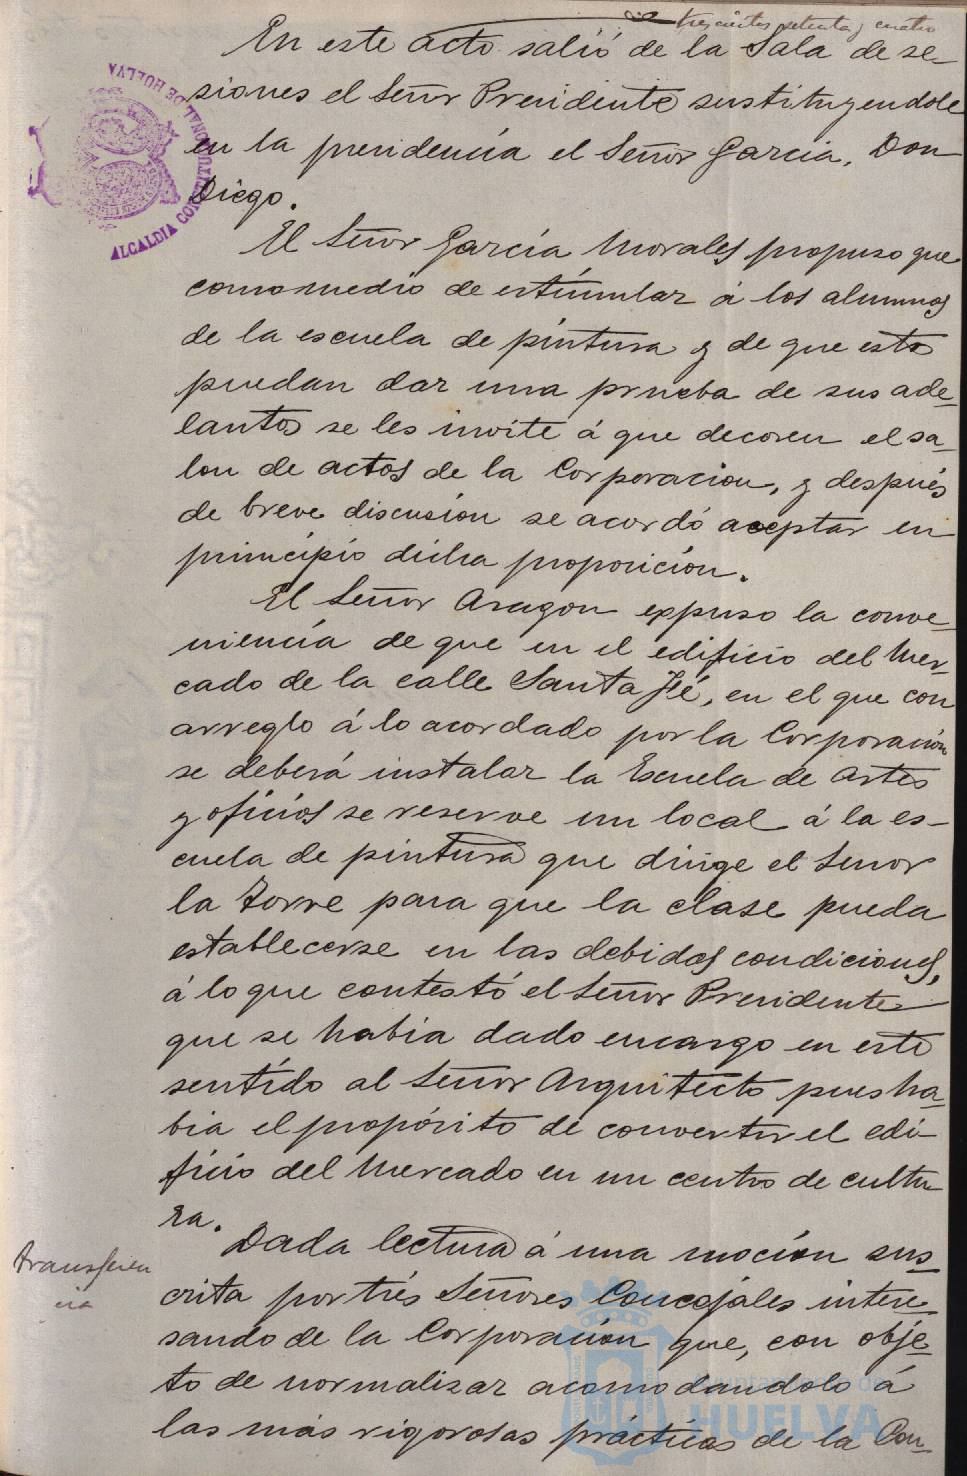 trescientos setenta y cuatro
En este acto salió de la Sala de se-
siones el Señor Presidente sustituyendole
en la presidencia el Señor Garcia, Don
Diego.
El Señor García Morales propuso que
como medio de estimular á los alumnos
de la escuela de pintura y de que esto
puedan dar una prueba de sus ade-
lantos se les invite á que decoren el sa-
lon de actos de la Corporacion, y después
de breve discusión se acordó aceptar en
principio dicha proposición.
El Señor Aragon expuso la conve-
niencia de que en el edificio del Mer-
cado de la calle Santa Fé, en el que con
arreglo á lo acordado por la Corporación
se deberá instalar la Escuela de Artes
y oficios se reserve un local á la es-
cuela de pintura que dirige el Señor
la Torre para que la clase pueda
establecerse en las debidas condiciones,
á lo que contestó el Señor Presidente
que se habia dado encargo en este
sentido al Señor Arquitecto pues ha-
bia el propósito de convertir el edi-
ficio del Mercado en un centro de cultu-
ra.
transferen
cia
Dada lectura á una moción sus-
crita por trés Señores Concejales intere-
sando de la Corporación que, con obje-
to de normalizar acomodandolo á
las más rigorosas prácticas de la Con-
ALCALDIA CONSTITUCIONAL DE HUELVA
Ayuntamiento de
HUELVA